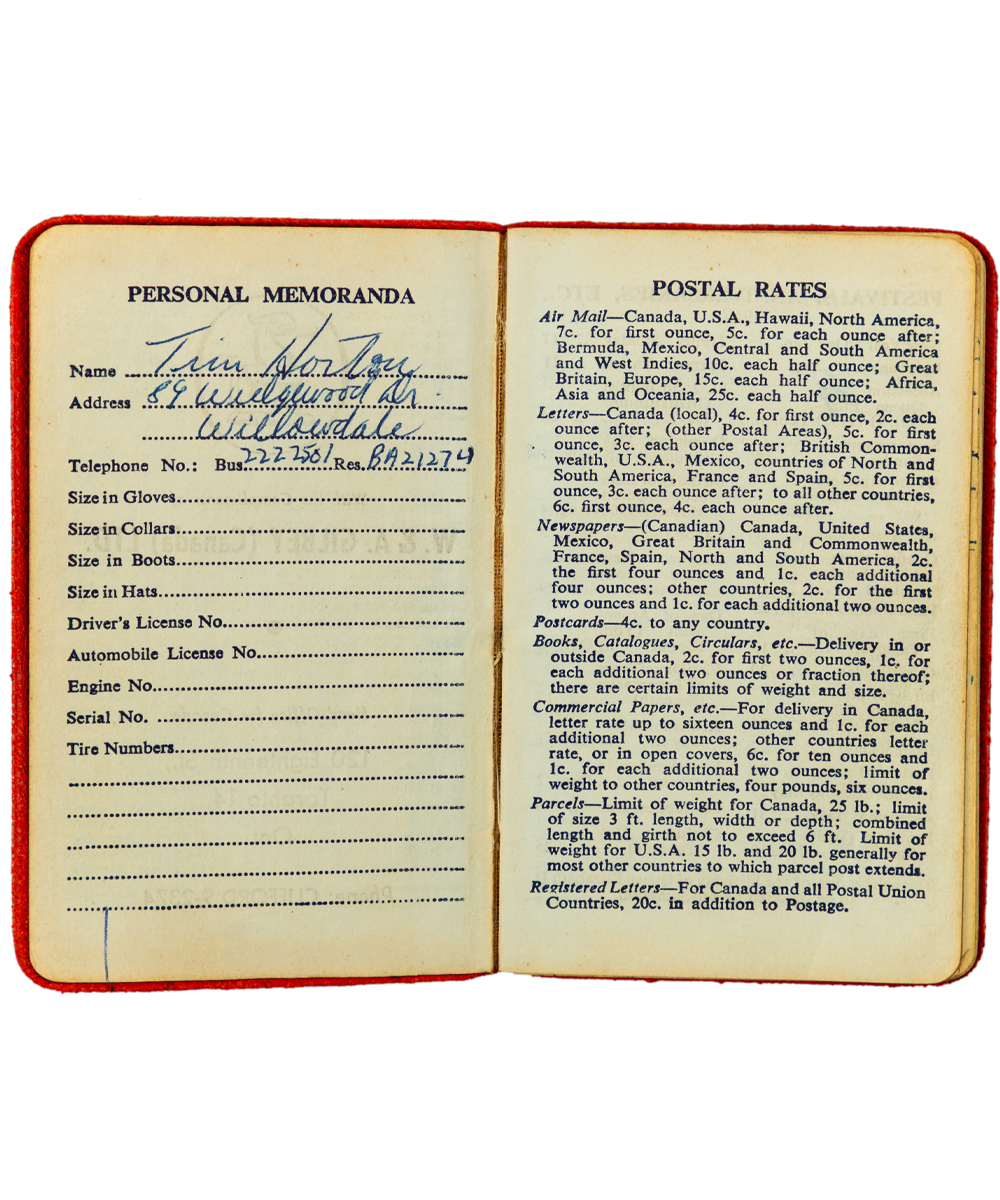 PERSONAL MEMORANDA
Name Tim Horton
Address 89 Wedgewood Dr.
Willowdale
Telephone No.: Bus. 2222501 Res. BA21274
Size in Gloves
Size in Collars
Size in Boots
Size in Hats
Driver's License No.
Automobile License No.
Engine No.
Serial No.
Tire Numbers
POSTAL RATES
Air Mail—Canada, U.S.A., Hawaii, North America,
7c. for first ounce, 5c. for each ounce after;
Bermuda, Mexico, Central and South America
and West Indies, 10c. each half ounce; Great
Britain, Europe, 15c. each half ounce; Africa,
Asia and Oceania, 25c. each half ounce.
Letters—Canada (local), 4c. for first ounce, 2c. each
ounce after; (other Postal Areas), 5c. for first
ounce, 3c. each ounce after; British Common-
wealth, U.S.A., Mexico, countries of North and
South America, France and Spain, 5c. for first
ounce, 3c. each ounce after; to all other countries,
6c. first ounce, 4c. each ounce after.
Newspapers—(Canadian) Canada, United States,
Mexico, Great Britain and Commonwealth,
France, Spain, North and South America, 2c.
the first four ounces and 1c. each additional
four ounces; other countries, 2c. for the first
two ounces and 1c. for each additional two ounces.
Postcards—4c. to any country.
Books, Catalogues, Circulars, etc.—Delivery in or
outside Canada, 2c. for first two ounces, 1c. for
each additional two ounces or fraction thereof;
there are certain limits of weight and size.
Commercial Papers, etc.—For delivery in Canada,
letter rate up to sixteen ounces and 1c. for each
additional two ounces; other countries letter
rate, or in open covers, 6c. for ten ounces and
1c. for each additional two ounces; limit of
weight to other countries, four pounds, six ounces.
Parcels—Limit of weight for Canada, 25 lb.; limit
of size 3 ft. length, width or depth; combined
length and girth not to exceed 6 ft. Limit of
weight for U.S.A. 15 lb. and 20 lb. generally for
most other countries to which parcel post extends.
Registered Letters—For Canada and all Postal Union
Countries, 20c. in addition to Postage.